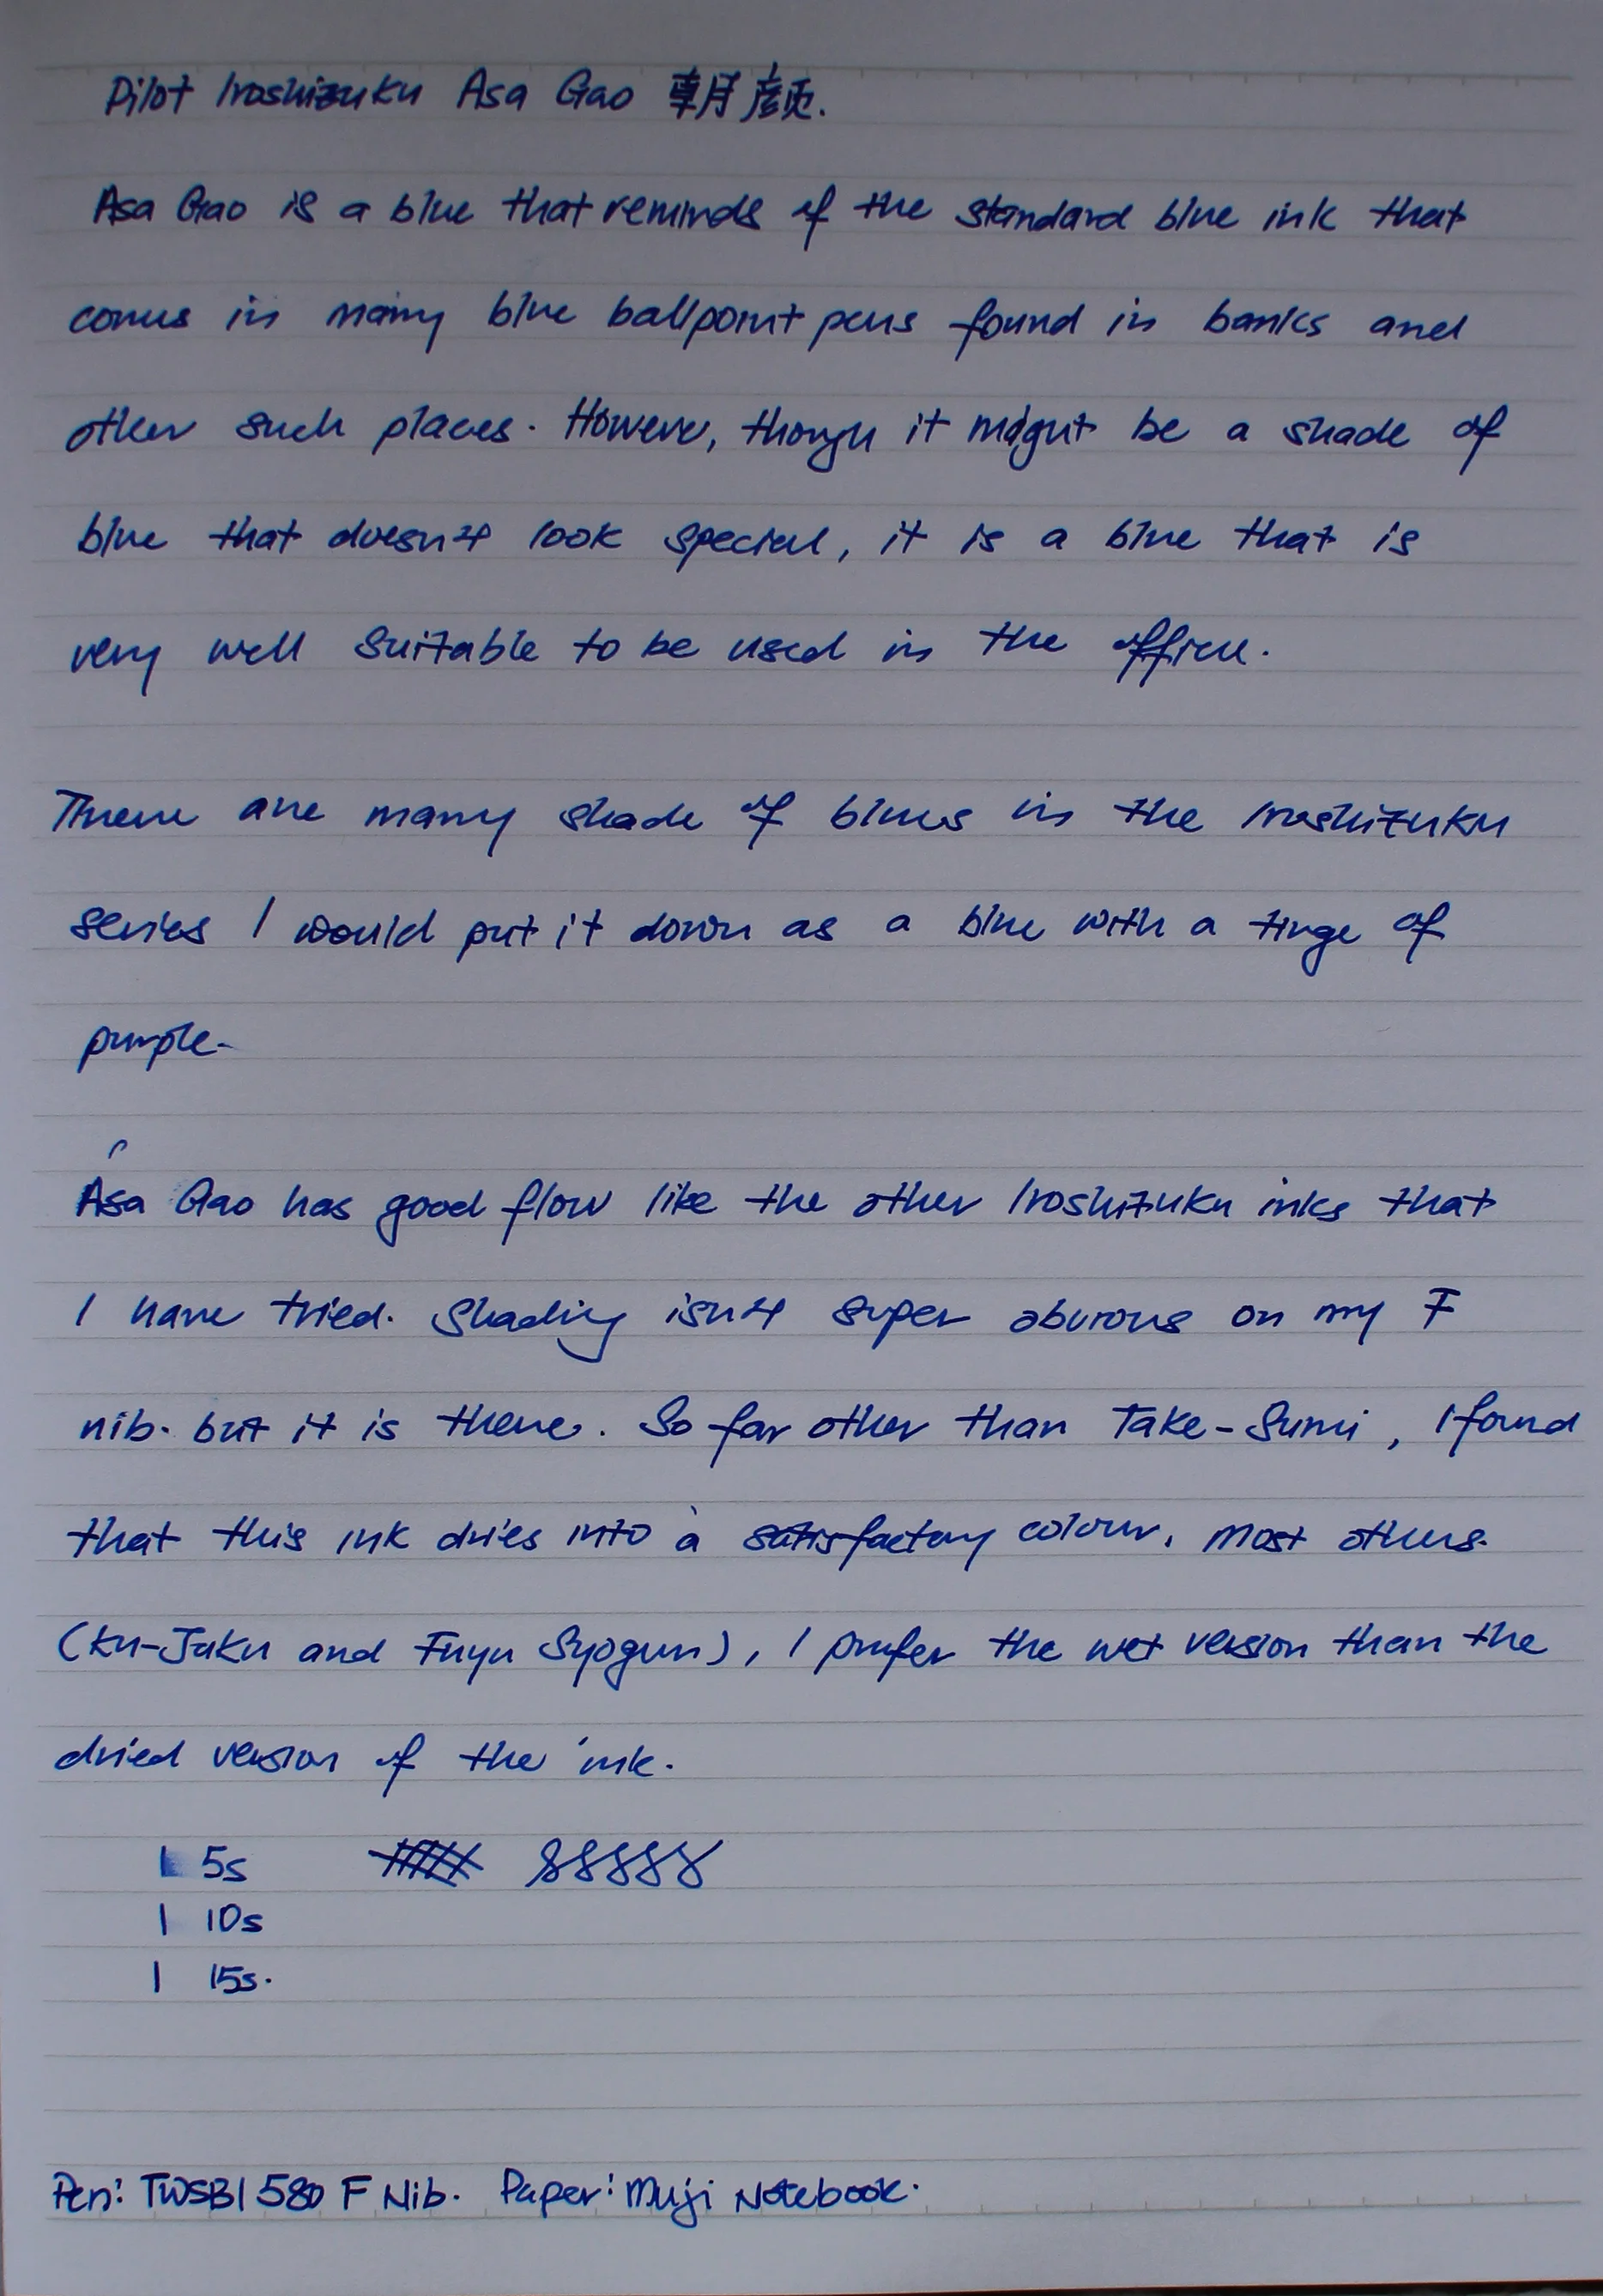 Pilot Iroshizuku Asa Gao 朝顔.
Asa Gao is a blue that reminds of the standard blue ink that
comes in many blue ballpoint pens found in banks and
other such places. However, though it might be a shade of
blue that doesn't look special, it is a blue that is
very well suitable to be used in the office.
There are many shade of blues in the Iroshizuku
series I would put it down as a blue with a tinge of
purple.
Asa Gao has good flow like the other Iroshizuku inks that
I have tried. Shading isn't super obvious on my F
nib. but it is there. So far other than Take-Sumi, I found
that this ink dries into a satisfactory colour. Most others.
(Ku-Jaku and Fuyu Syogun), I prefer the wet version than the
dried version of the ink.
5s
10s
15s.
Pen: TWSBI 580 F Nib. Paper: Muji Notebook.